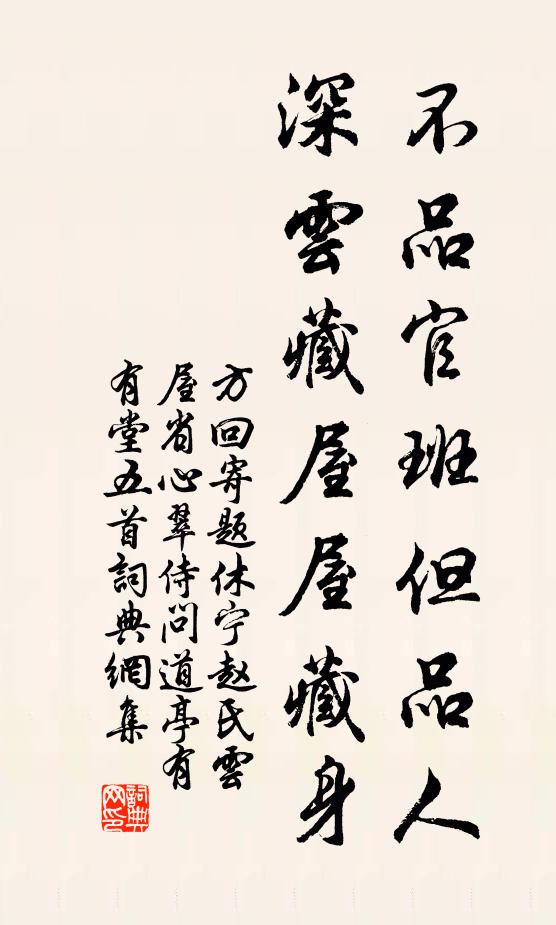 不品官班但品人
深雲藏屋屋藏身
方回寄題休宁赵氏雲
屋省心翠侍问道亭有
有堂五首詞典網集
詞典
网印